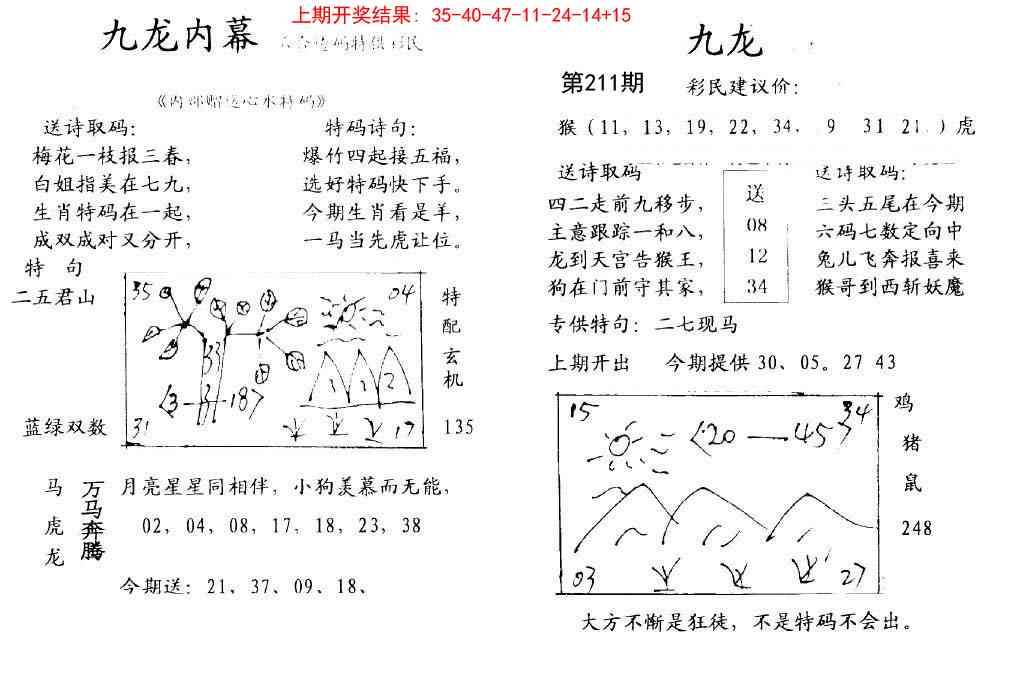 上期开奖结果：35-40-47-11-24-14+15
九龙内幕
送诗取码：
梅花一枝报三春，
白姐指美在七九，
生肖特码在一起，
成双成对又分开，
特码诗句：
爆竹四起接五福，
选好特码快下手。
今期生肖看是羊，
一马当先虎让位。
特 句
二五君山
蓝绿双数
35
04
33
〈3—3—18〉
1 1 2
31
17
特配玄机
135
马虎龙
万马奔腾
月亮星星同相伴，小狗羡慕而无能，
02、04、08、17、18、23、38
今期送：21、37、09、18、
九龙
第211期
彩民建议价：
猴（11，13，19，22，34． 9 31 21．）虎
送诗取码
四二走前九移步，
主意跟踪一和八，
龙到天宫告猴王，
狗在门前守其家，
送
08
12
34
送诗取码：
三头五尾在今期
六码七数定向中
兔儿飞奔报喜来
猴哥到西斩妖魔
专供特句：二七现马
上期开出 今期提供30、05。27 43
15
34
〈20—45〉
03
27
鸡
猪
鼠
248
大方不惭是狂徒，不是特码不会出。